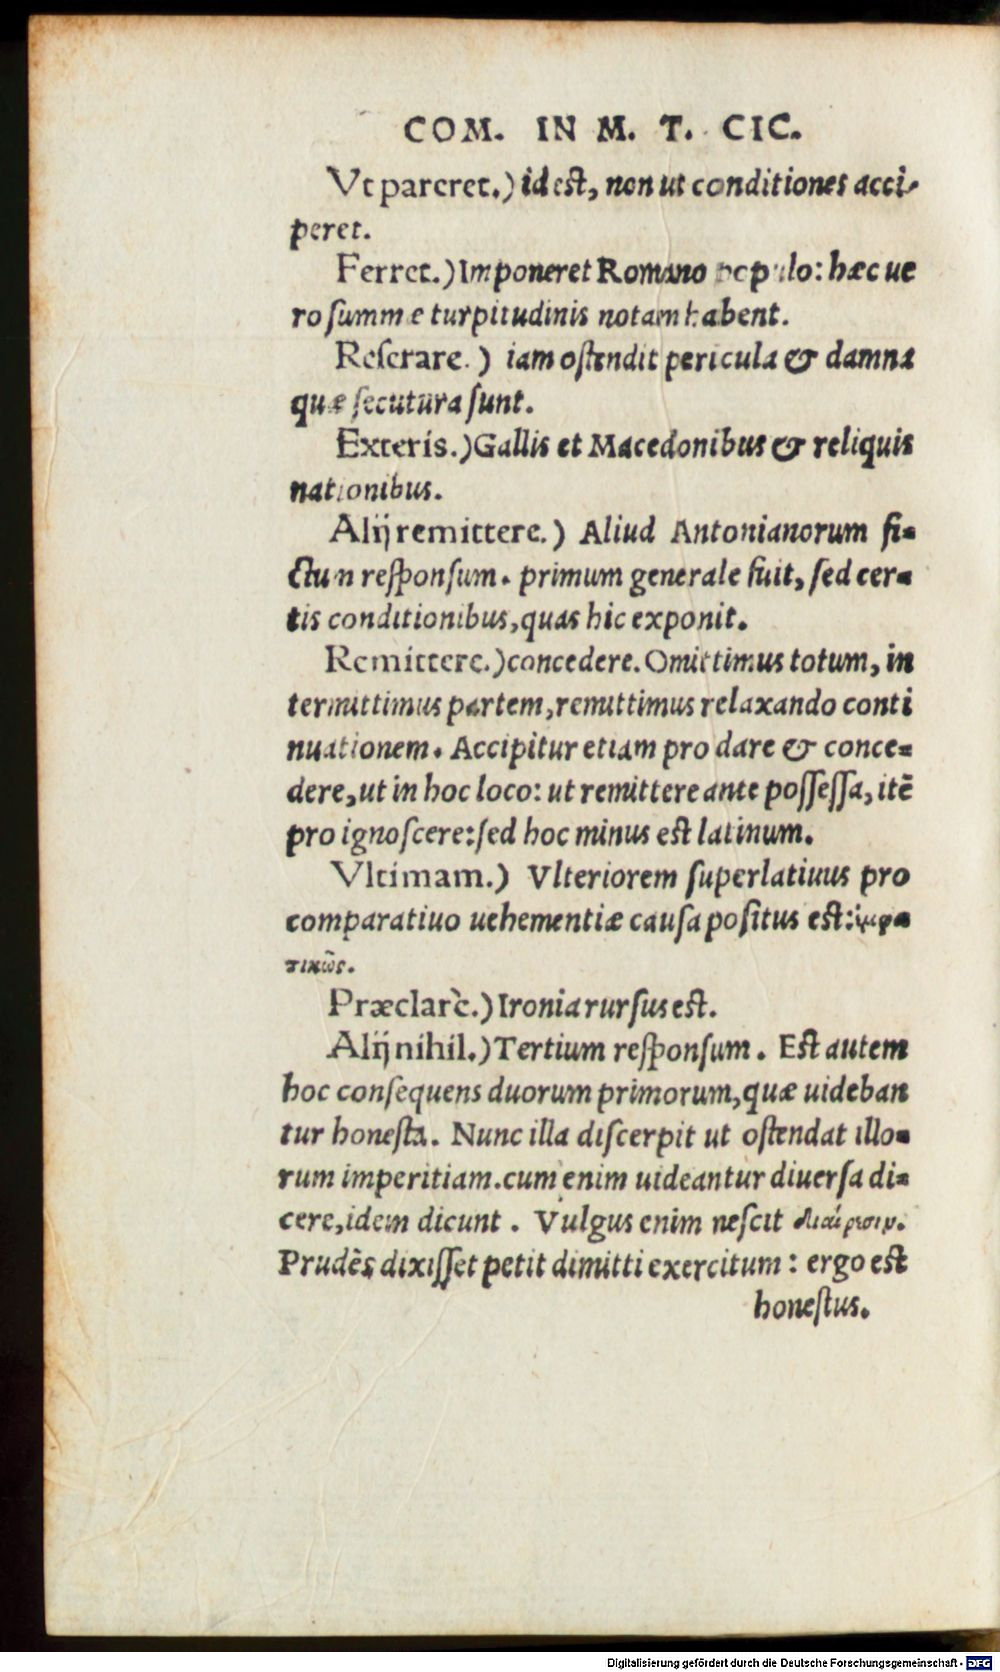 COM. IN M. T. CIC.
Vt pareret.) id est, non ut conditiones acci-
peret.
Ferret.) Imponeret Romano populo: hæc ue
ro summe turpitudinis notam habent.
Reserare.) iam ostendit pericula & damna
quæ secutura sunt.
Exteris.) Gallis et Macedonibus & reliquis
nationibus.
Alij remittere.) Aliud Antonianorum fi-
ctum responsum. primum generale fuit, sed cer-
tis conditionibus, quas hic exponit.
Remittere.) concedere. Omittimus totum, in
termittimus partem, remittimus relaxando conti
nuationem. Accipitur etiam pro dare & conce-
dere, ut in hoc loco: ut remittere ante possessa, itē
pro ignoscere: sed hoc minus est latinum.
Vltimam.) Vlteriorem superlatiuus pro
comparatiuo uehementiæ causa positus est:
τικῶς.
Præclarè.) Ironia rursus est.
Alij nihil.) Tertium responsum. Est autem
hoc consequens duorum primorum, quæ uideban
tur honesta. Nunc illa discerpit ut ostendat illo-
rum imperitiam. cum enim uideantur diuersa di-
cere, idem dicunt. Vulgus enim nescit διαίρεσιν.
Prudēs dixisset petit dimitti exercitum: ergo est
honestus.
Digitalisierung gefördert durch die Deutsche Forschungsgemeinschaft - DFG